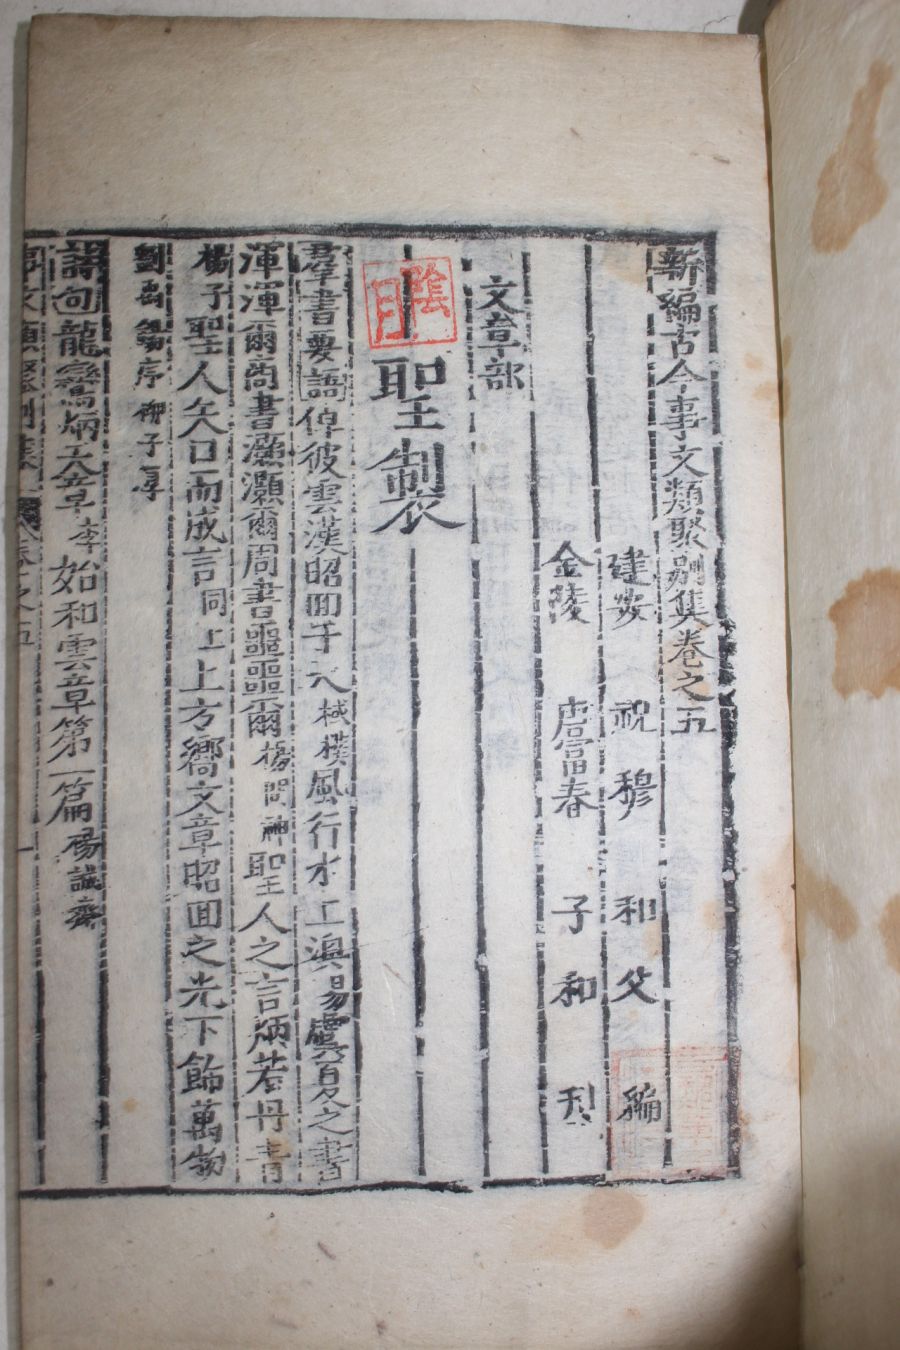 新編古今事文類聚別集卷之五
建安 祝 穆 和 父 編
金陵 唐富春 子 和 刊
文章部
聖製
羣書要語 倬彼雲漢昭囬于天 棫樸 風行水上渙 易 虞夏之書
渾渾爾商書灝灝爾周書噩噩爾 楊問神 聖人之言炳若丹青
楊子 聖人矢口而成言 同上 上方嚮文章昭囬之光下飾萬物
劉禹錫序柳子厚
詩句 龍鸞炳文章 李 始和雲章第一篇 楊誠齋